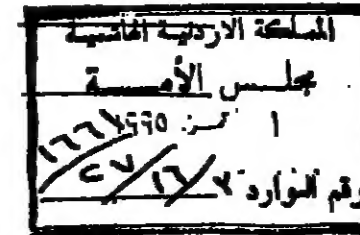 المملكة الاردنية الهاشمية
مجلس الأمة
١ تمز ١٩٩٥
رقم الوارد ٣/١٦/٢٧/١٦٦٧